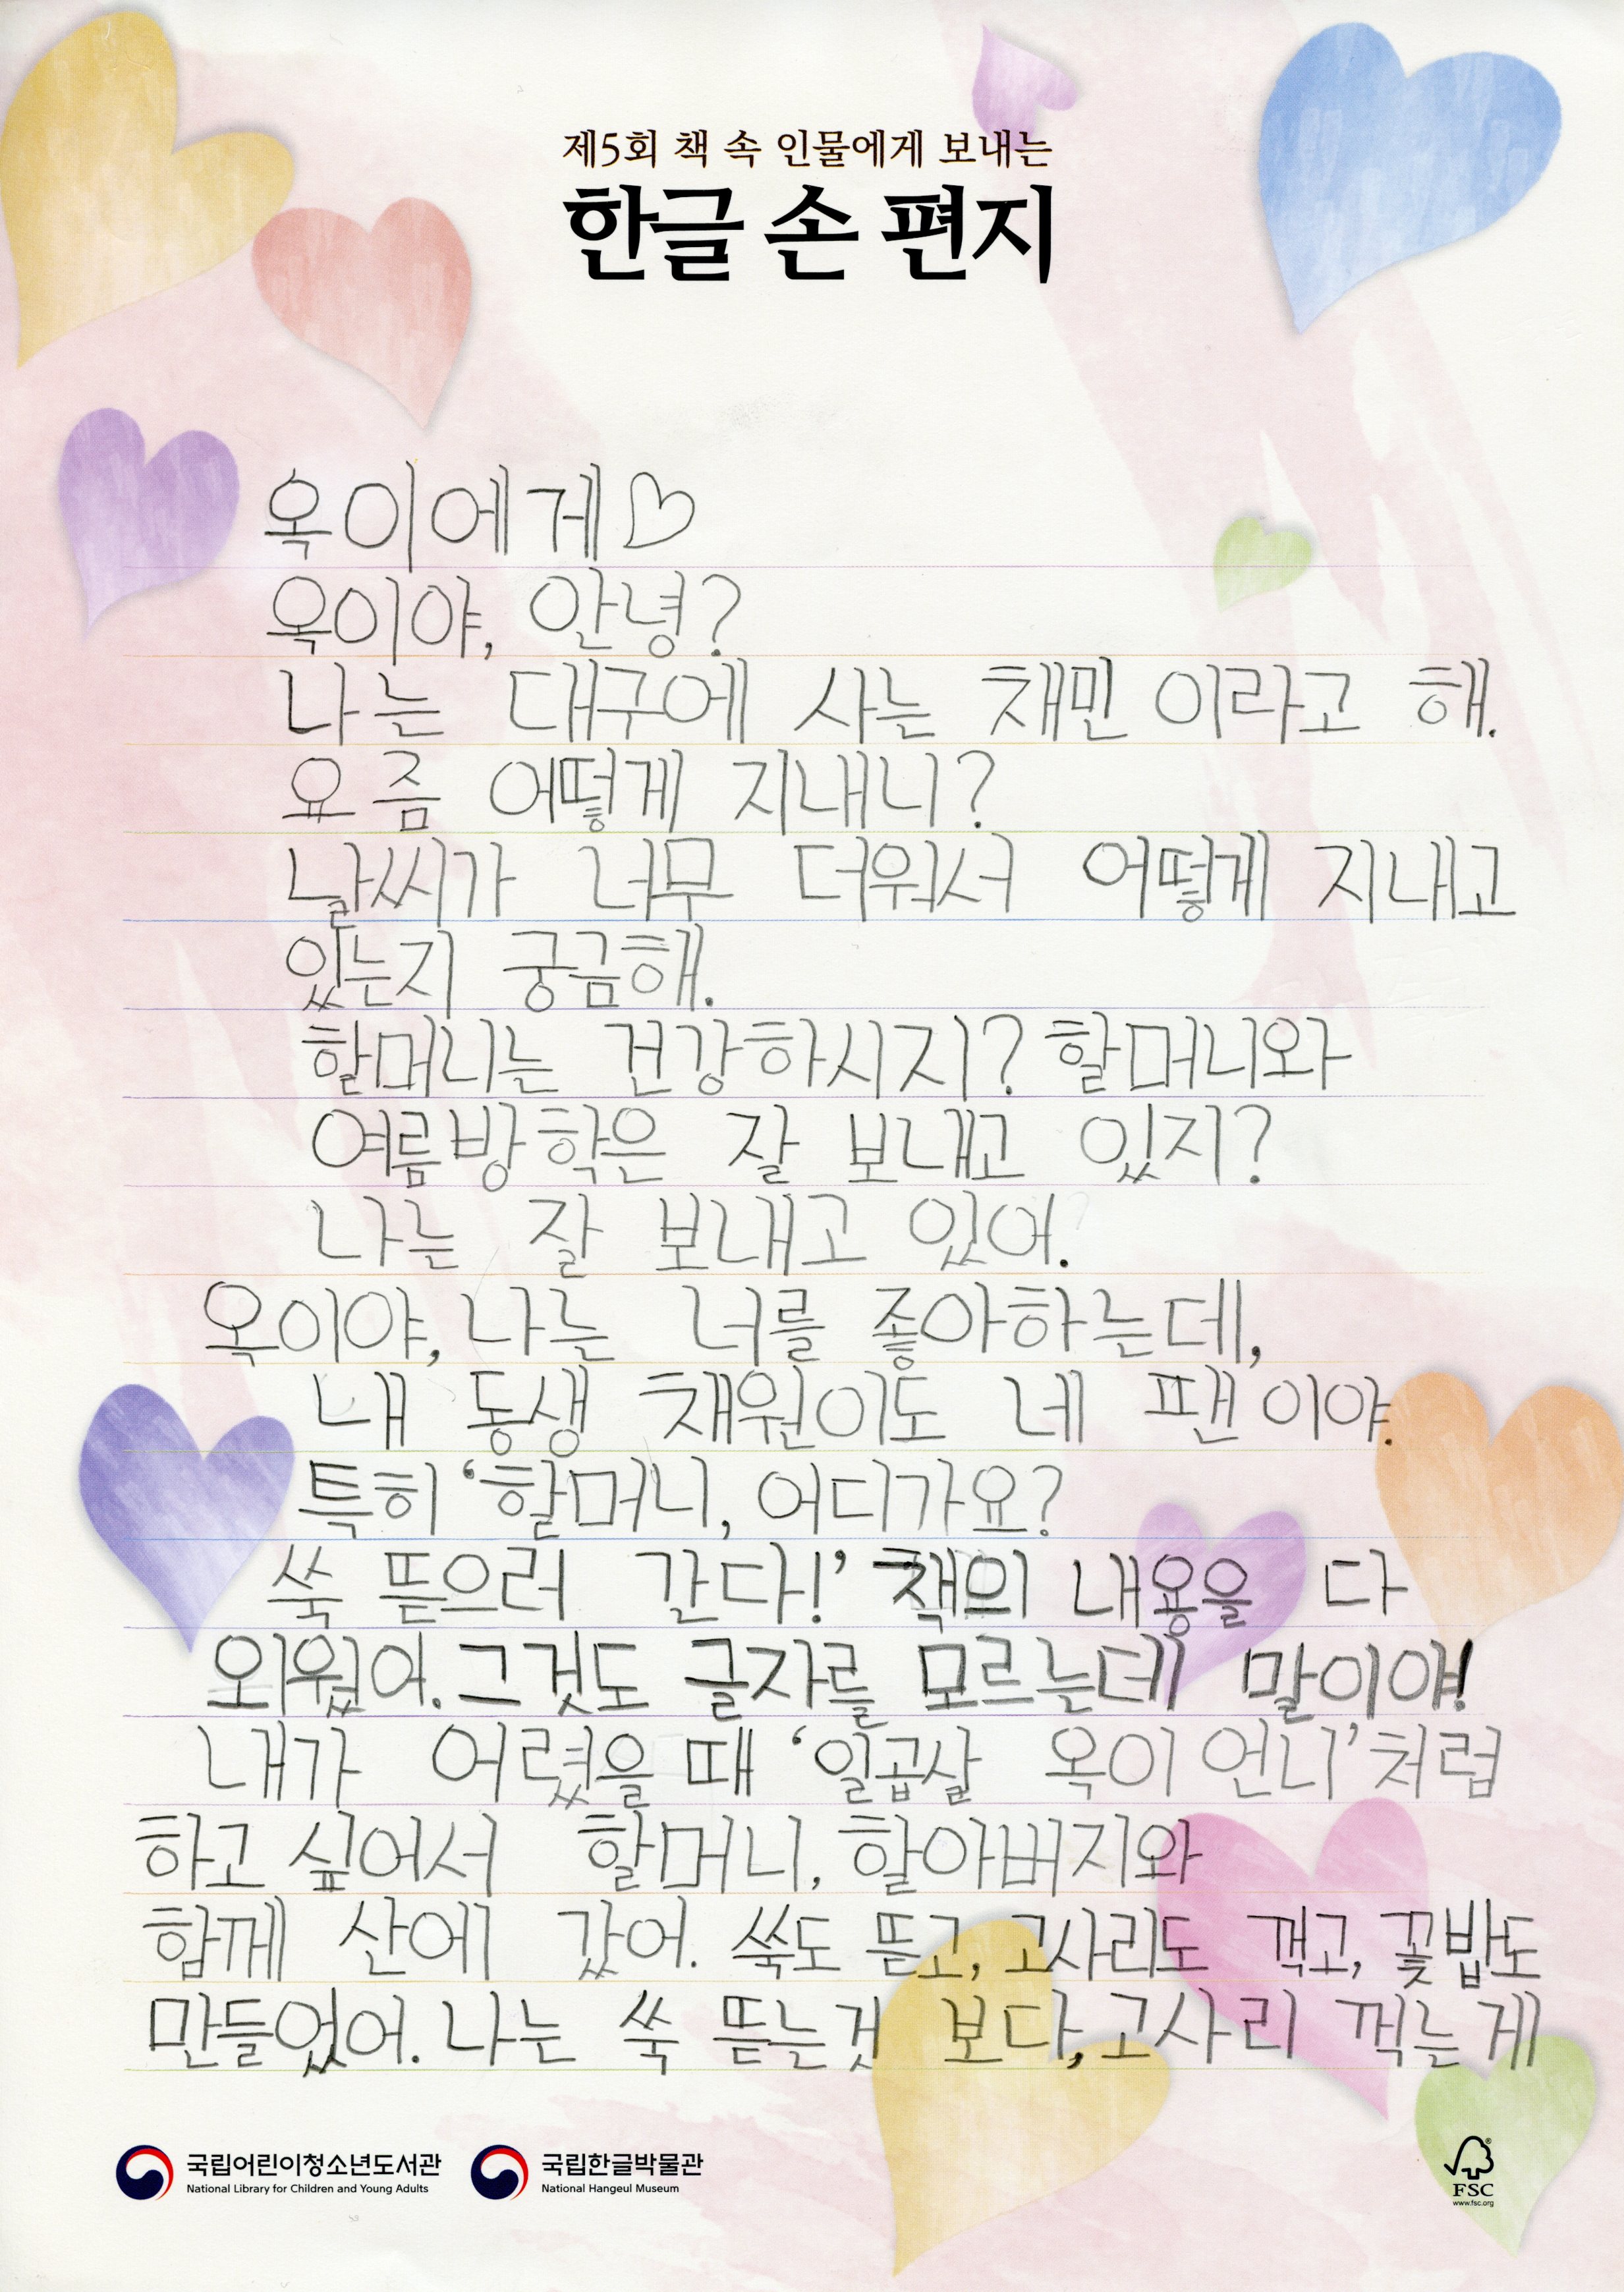 제5회 책 속 인물에게 보내는
한글 손 편지
옥이에게♡
옥이야, 안녕?
나는 대구에 사는 채민이라고 해.
요즘 어떻게 지내니?
날씨가 너무 더워서 어떻게 지내고
있는지 궁금해.
할머니는 건강하시지? 할머니와
여름방학은 잘 보내고 있지?
나는 잘 보내고 있어.
옥이야, 나는 너를 좋아하는데,
내 동생 채원이도 네 팬이야.
특히 ‘할머니, 어디가요?
쑥 뜯으러 간다!’ 책의 내용을 다
외웠어. 그것도 글자를 모르는데 말이야!
내가 어렸을 때 ‘일곱살 옥이 언니’처럼
하고 싶어서 할머니, 할아버지와
함께 산에 갔어. 쑥도 뜯고, 고사리도 꺽고, 꽃밥도
만들었어. 나는 쑥 뜯는것 보다, 고사리 꺽는게
국립어린이청소년도서관
National Library for Children and Young Adults
국립한글박물관
National Hangeul Museum
FSC
www.fsc.org